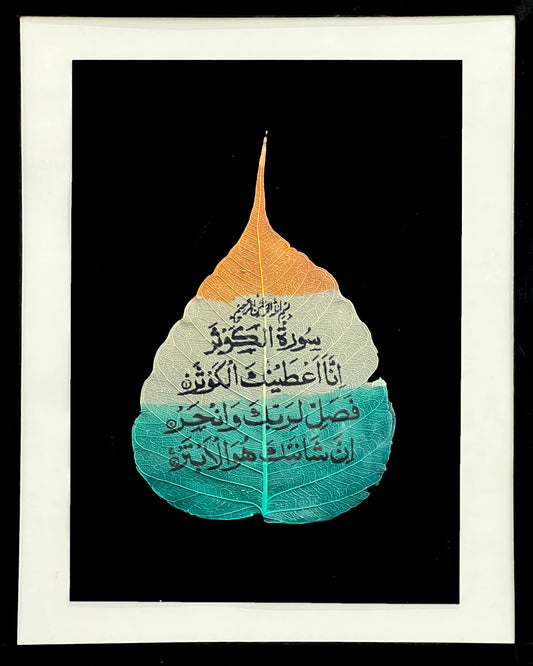 بسم الله الرحمن الرحيم
سورة الكوثر
اِنَّا اَعْطَيْنٰكَ الْكَوْثَرَ
فَصَلِّ لِرَبِّكَ وَانْحَرْ
اِنَّ شَانِئَكَ هُوَ الْاَبْتَرُ